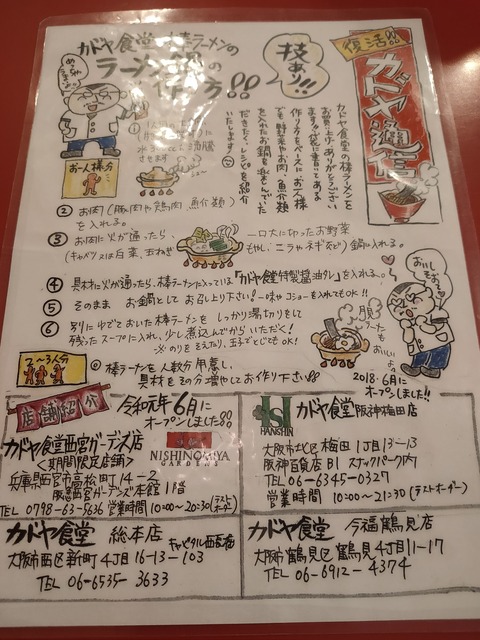 復活!!
カドヤ通信
技あり!!
カドヤ食堂の棒ラーメンを
お買い上げありがとうござい
ます!!お袋に書いてある
作り方をベースにお一人様
でも野菜やお肉、魚介類
を入れたお鍋を楽しんでい
ただきたくレシピを紹介
いたします!
カドヤ食堂 棒ラーメンの
ラーメン
作り方!!
お一人様分
①
②お肉(豚肉や鶏肉、魚介類)
を入れる。
③お肉に火が通ったら、
一口大に切ったお野菜
(キャベツ又は白菜、玉ねぎ
もやし、ニラやネギなど)鍋に入れる。
④具材に火が通ったら、棒ラーメンに入っている『カドヤ食堂特製醤油タレ』を入れる。
⑤そのまま お鍋として お召し上り下さい!一味やコショーを入れてもOK!!
⑥別にゆでておいた棒ラーメンを しっかり湯切りをして
残ったスープに入れ、少し煮込んでからいただく!
※のりをそえたり、玉子でとじてもOK!
2〜3人分
棒ラーメンを人数分用意し、
具材をその分増やしてお作り下さい!!
2018・6月に
オープンしました!!
店舗紹介
令和元年6月に
オープンしました!!
カドヤ食堂西宮ガーデンズ店
<期間限定店舗>
NISHINOMIYA
GARDENS
兵庫県西宮市高松町14-2
阪急西宮ガーデンズ本館1階
TEL 0798-63-5636 営業時間 10:00〜20:30(ラストオーダー)
HANSHIN
カドヤ食堂 阪神梅田店
大阪市北区梅田1丁目13-13
阪神百貨店B1 スナックパーク内
TEL 06-6345-0327
営業時間 10:00〜21:30(ラストオーダー)
カドヤ食堂 総本店
大阪市西区新町4丁目16-13-103
キャピタル西長堀
TEL 06-6535-3633
カドヤ食堂 今福鶴見店
大阪市鶴見区鶴見4丁目11-17
TEL 06-6912-4374